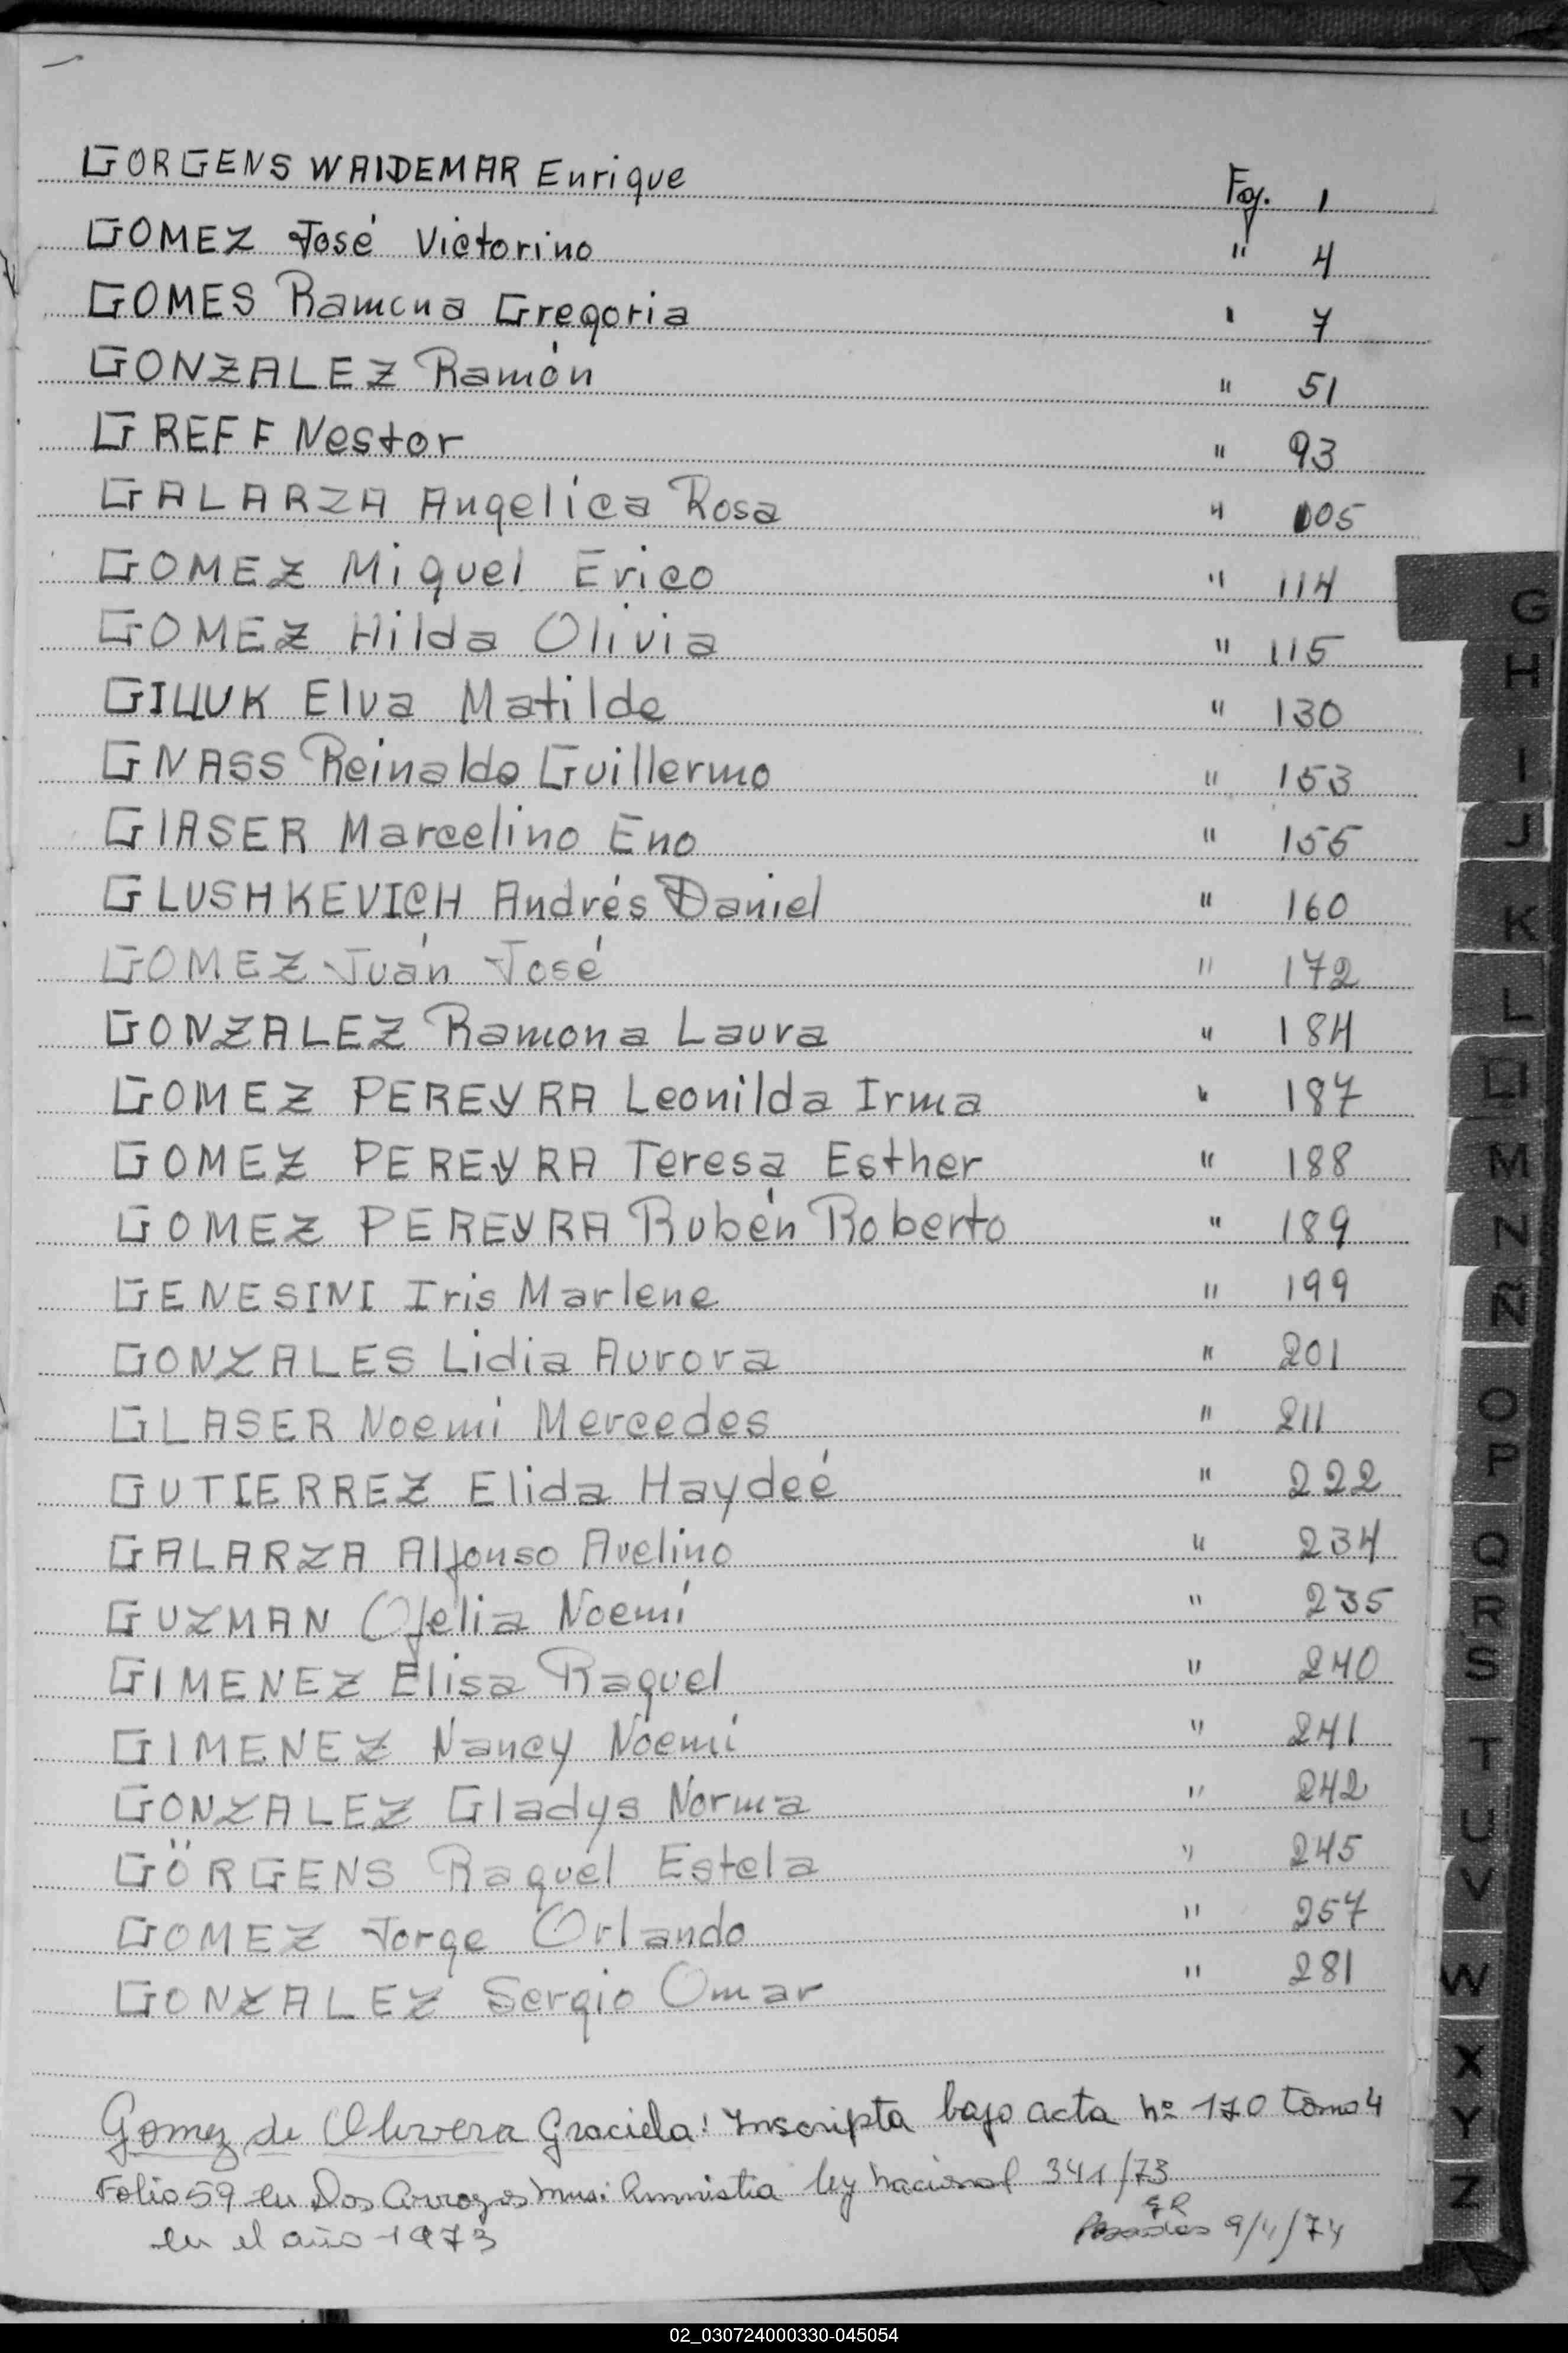 GORGENS WALDEMAR Enrique Foj. 1
GOMEZ José Victorino " 4
GOMES Ramona Gregoria " 7
GONZALEZ Ramón " 51
GREFF Nestor " 93
GALARZA Angelica Rosa " 105
GOMEZ Miguel Erico " 114
GOMEZ Hilda Olivia " 115
GILLUK Elva Matilde " 130
GNASS Reinaldo Guillermo " 153
GLASER Marcelino Eno " 155
GLUSHKEVICH Andrés Daniel " 160
GOMEZ Juán José " 172
GONZALEZ Ramona Laura " 184
GOMEZ PEREYRA Leonilda Irma " 187
GOMEZ PEREYRA Teresa Esther " 188
GOMEZ PEREYRA Rubén Roberto " 189
GENESINI Iris Marlene " 199
GONZALES Lidia Aurora " 201
GLASER Noemi Mercedes " 211
GUTIERREZ Elida Haydeé " 222
GALARZA Alfonso Avelino " 234
GUZMAN Ofelia Noemí " 235
GIMENEZ Elisa Raquel " 240
GIMENEZ Nancy Noemí " 241
GONZALEZ Gladys Norma " 242
GÖRGENS Raquel Estela " 245
GOMEZ Jorge Orlando " 257
GONZALEZ Sergio Omar " 281
Gomez de Olivera Graciela: Inscripta bajo acta nº 170 tomo 4
Folio 59 en Dos Arroyos Mnes: Amnistia ley nacional 341/73
en el año 1973
9/4/74
G
H
I
J
K
L
Ll
M
N
Ñ
O
P
Q
R
S
T
U
V
W
X
Y
Z
02_030724000330-045054